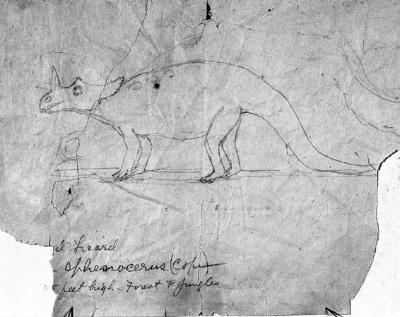 Lizard
sphenocerus (Cope)
feet high - Forest & Jungles